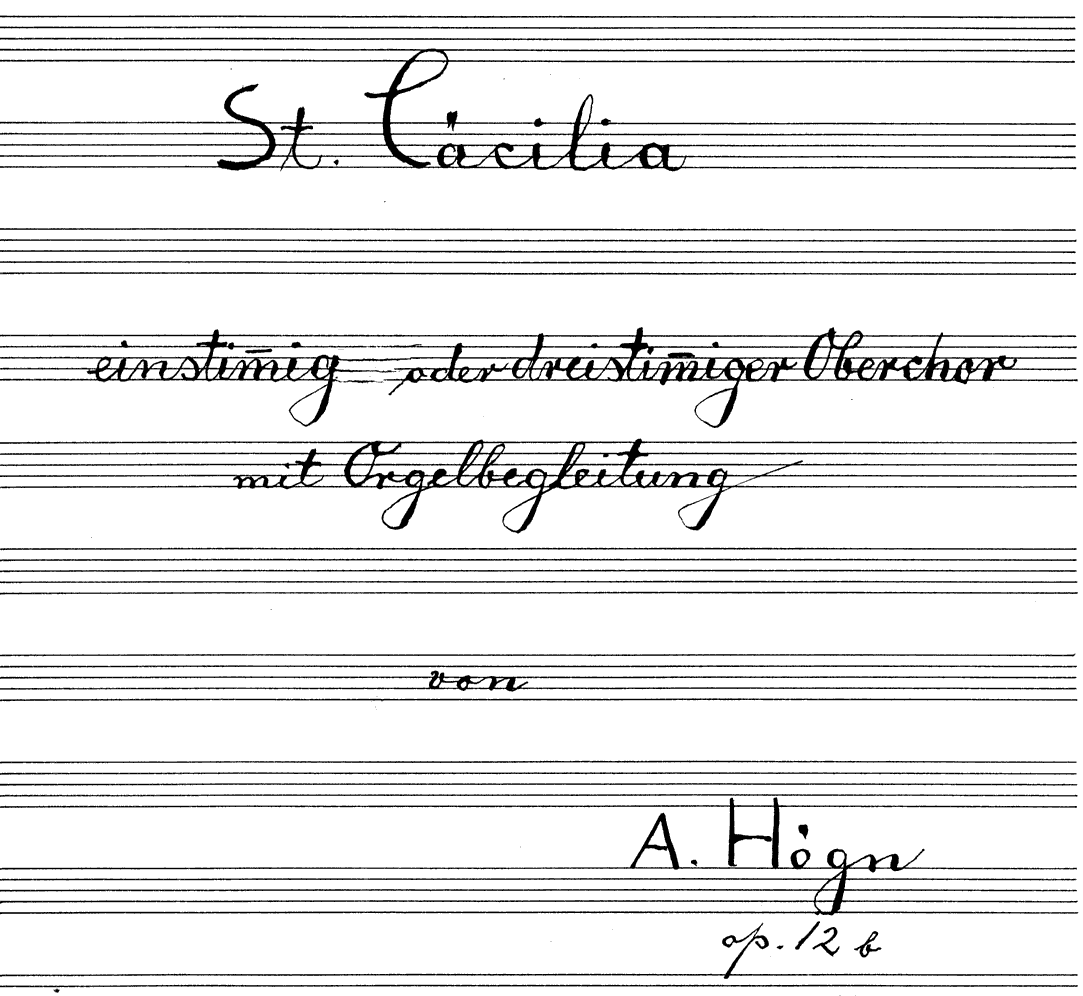 St. Cäcilia
einstim̄ig oder dreistim̄iger Oberchor
mit Orgelbegleitung
von
A. Högn
op. 12 b